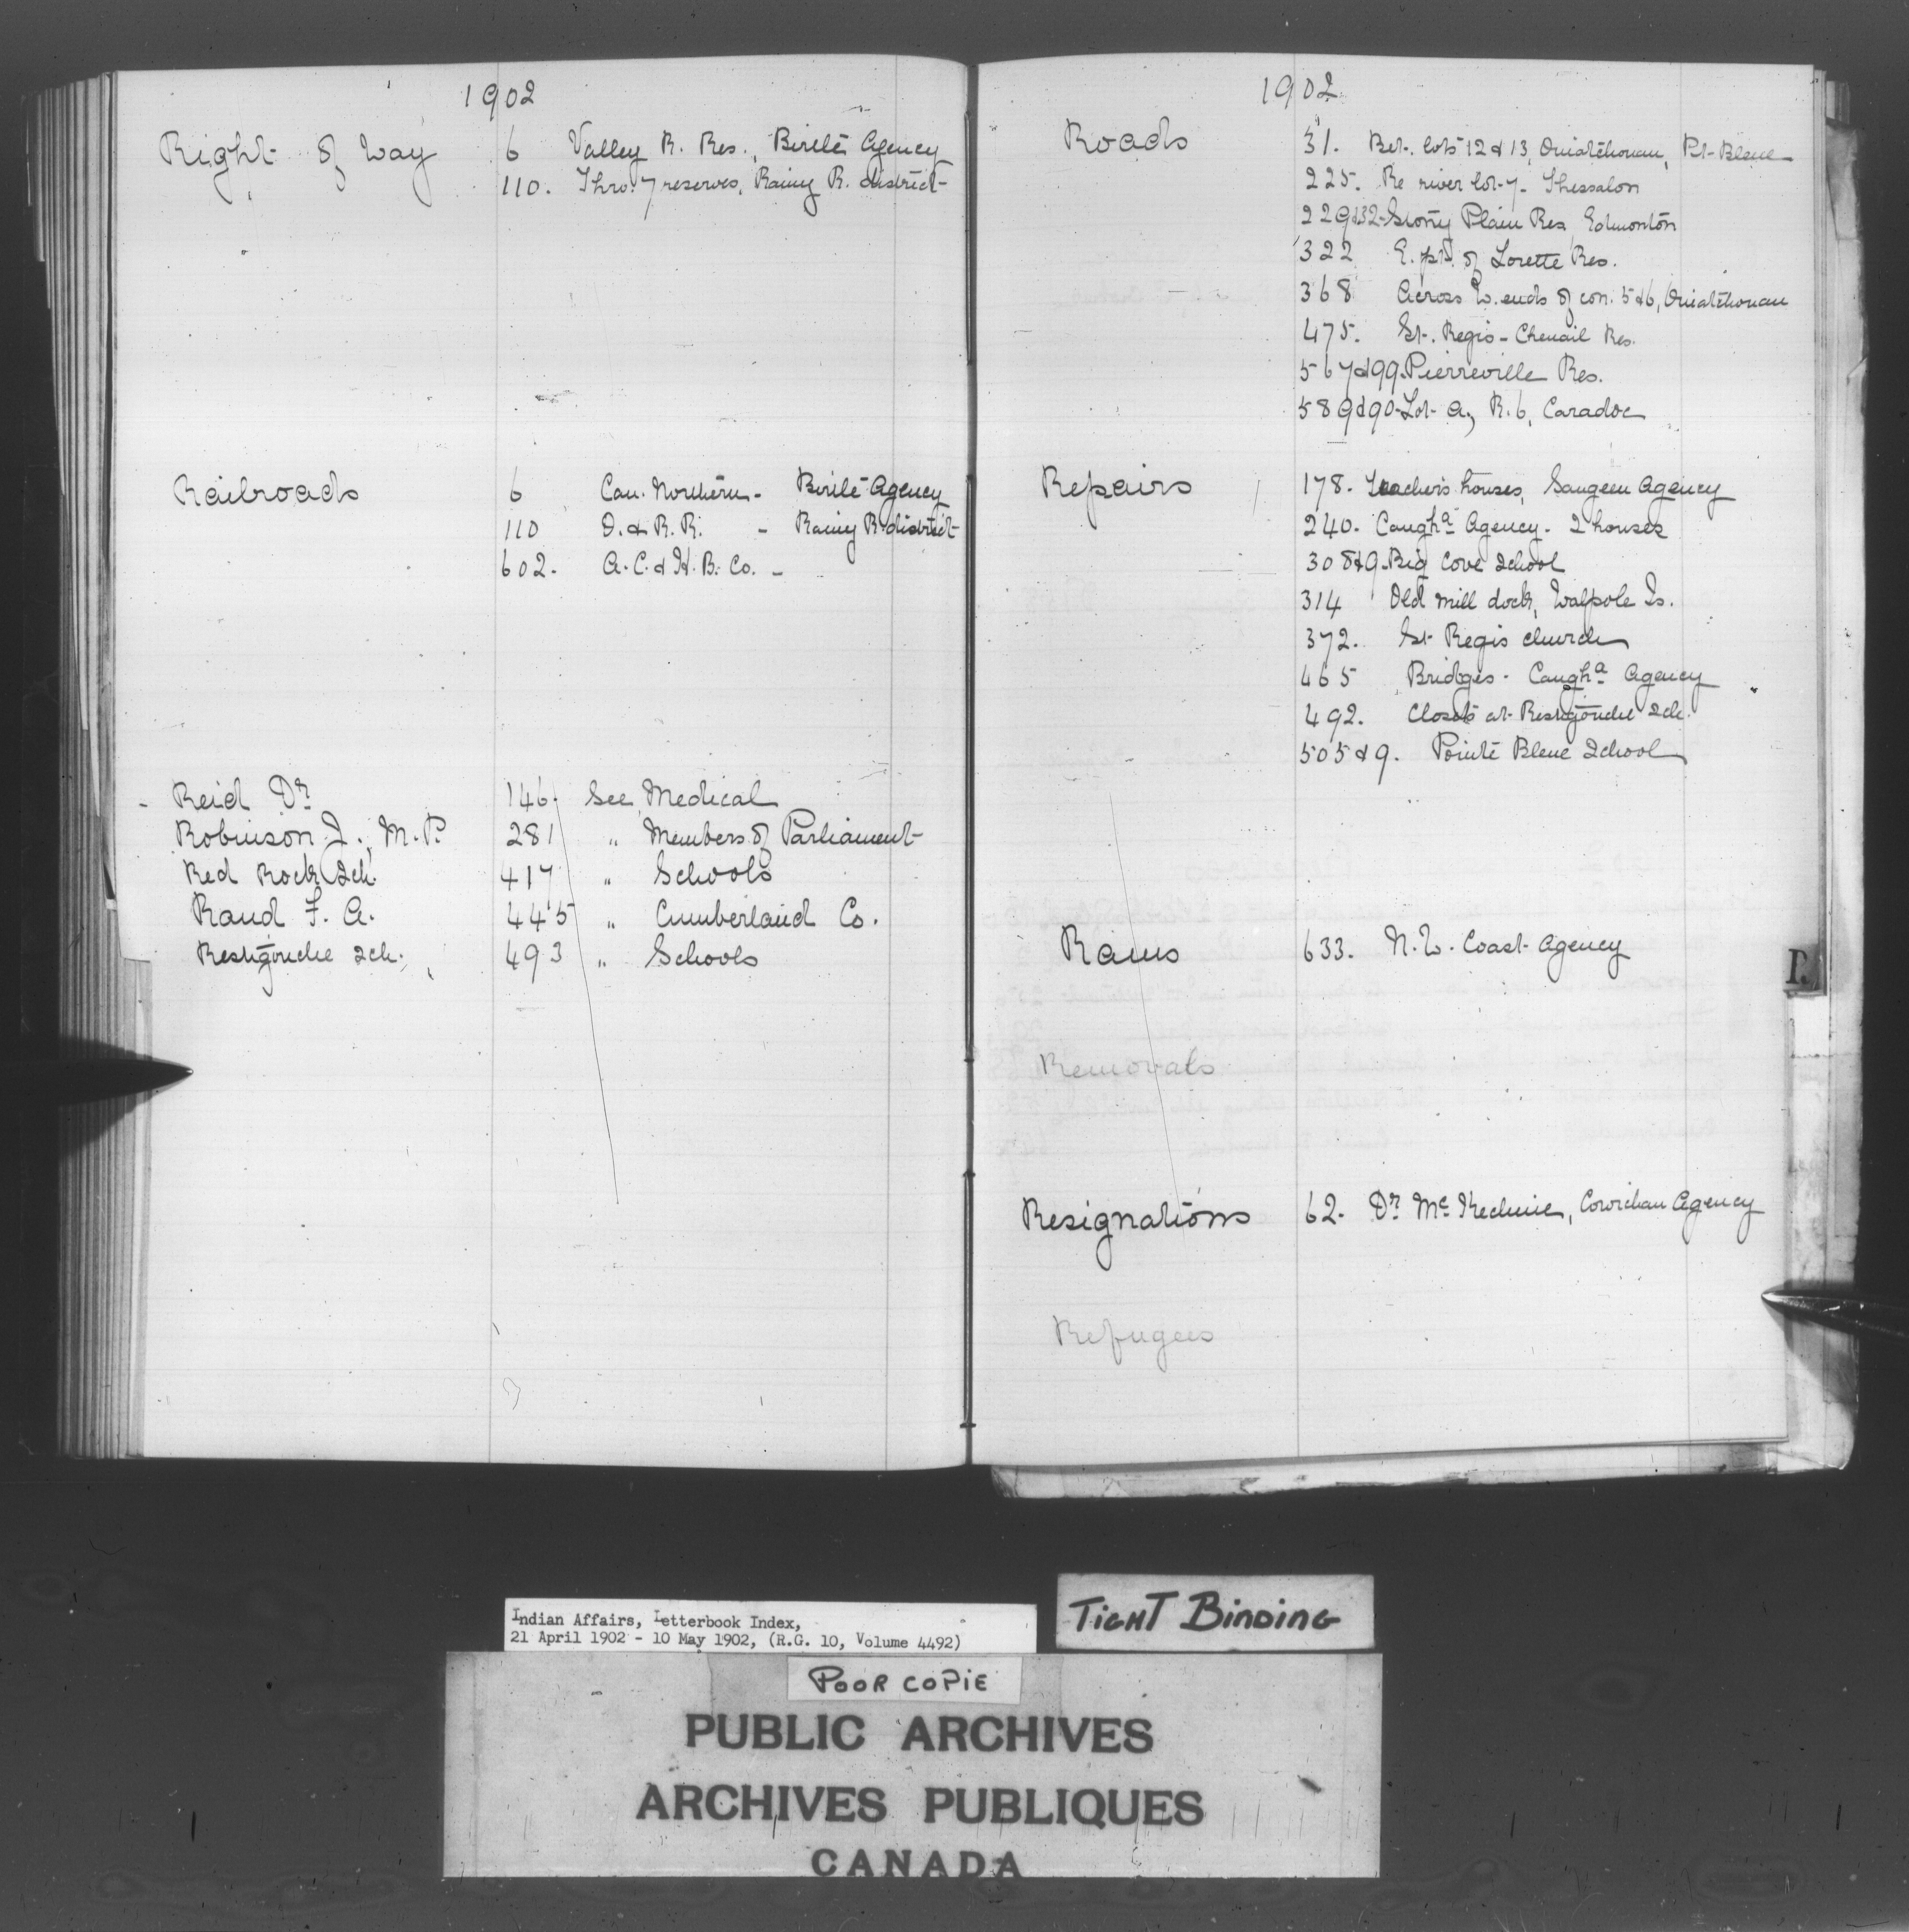 1902
Right of Way 6 Valley R. Res., Birtle Agency
110. Thro. 7 reserves, Rainy R. district
Railroads 6 Can. Northern - Birtle Agency
110 O. & R. R. - Rainy R. district
602. A. C. & H. B. Co. -
Reid Dr. 146. See Medical
Robinson J., M.P. 281 " Members of Parliament
Red Rock Sch. 417 " Schools
Rand F. A. 445 " Cumberland Co.
Restigouche Sch. 493 " Schools
1902
Roads 31. Bet. lots 12 & 13, Ouiatchouan, Pt. Bleue
225. Re river lot 7. Thessalon
229&32. Stony Plain Res. Edmonton
322 E. pt. of Lorette Res.
368 Across W. ends of con. 5 & 6, Ouiatchouan
475. St. Regis - Chenail Res.
567&99. Pierreville Res.
589&90. Lot A, R. 6, Caradoc
Repairs 178. Teacher's houses, Saugeen Agency
240. Caugha Agency. 2 houses
308&9. Big Cove School
314 Old mill dock, Walpole Is.
372. St Regis church
465 Bridges - Caugha Agency
492. Closets at Restigouche Sch.
505 & 9. Pointe Bleue School
Rams 633. N. W. Coast Agency
Removals
Resignations 62. Dr. McKechnie, Cowichan Agency
Refugees
R.
Indian Affairs, Letterbook Index,
21 April 1902 - 10 May 1902, (R.G. 10, Volume 4492)
TIGHT BINDING
POOR COPIE
PUBLIC ARCHIVES
ARCHIVES PUBLIQUES
CANADA